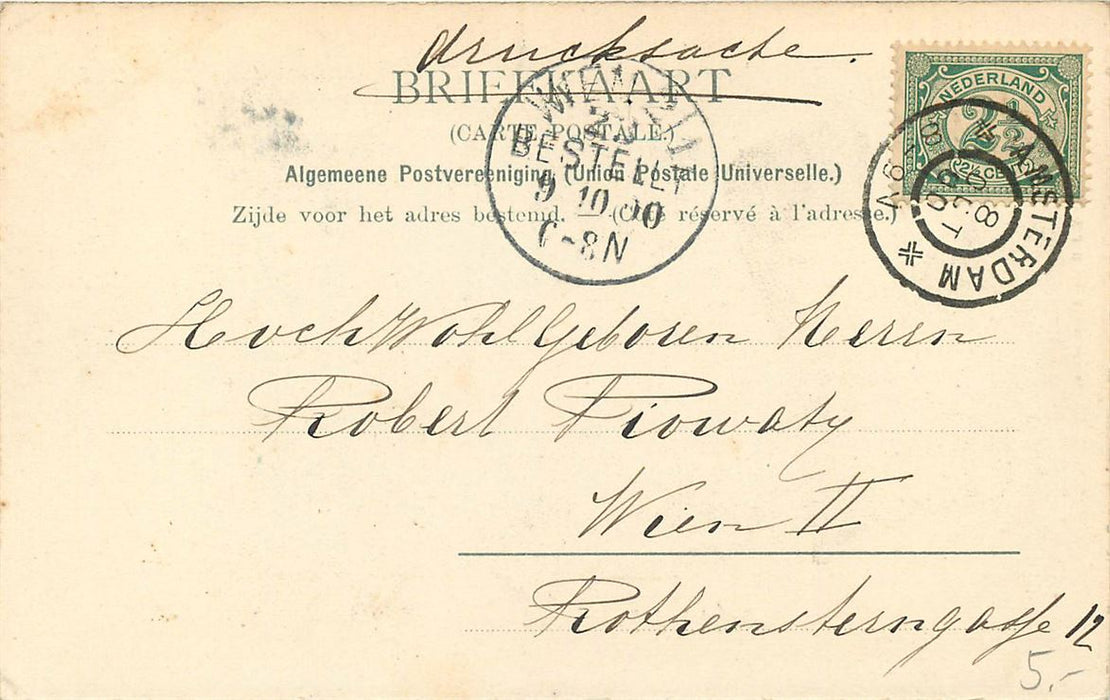 drucksache.
BRIEFKAART
(CARTE POSTALE.)
Algemeene Postvereeniging (Union Postale Universelle.)
Zijde voor het adres bestemd. — (Côté réservé à l'adresse.)
NEDERLAND
2½
2½ CENT
AMSTERDAM
8 OCT
WIEN
BESTELLT
9 10 00
-8N
HochWohlGeboren Herrn
Robert Piowaty
Wien II
Rothensterngasse 12
5,-